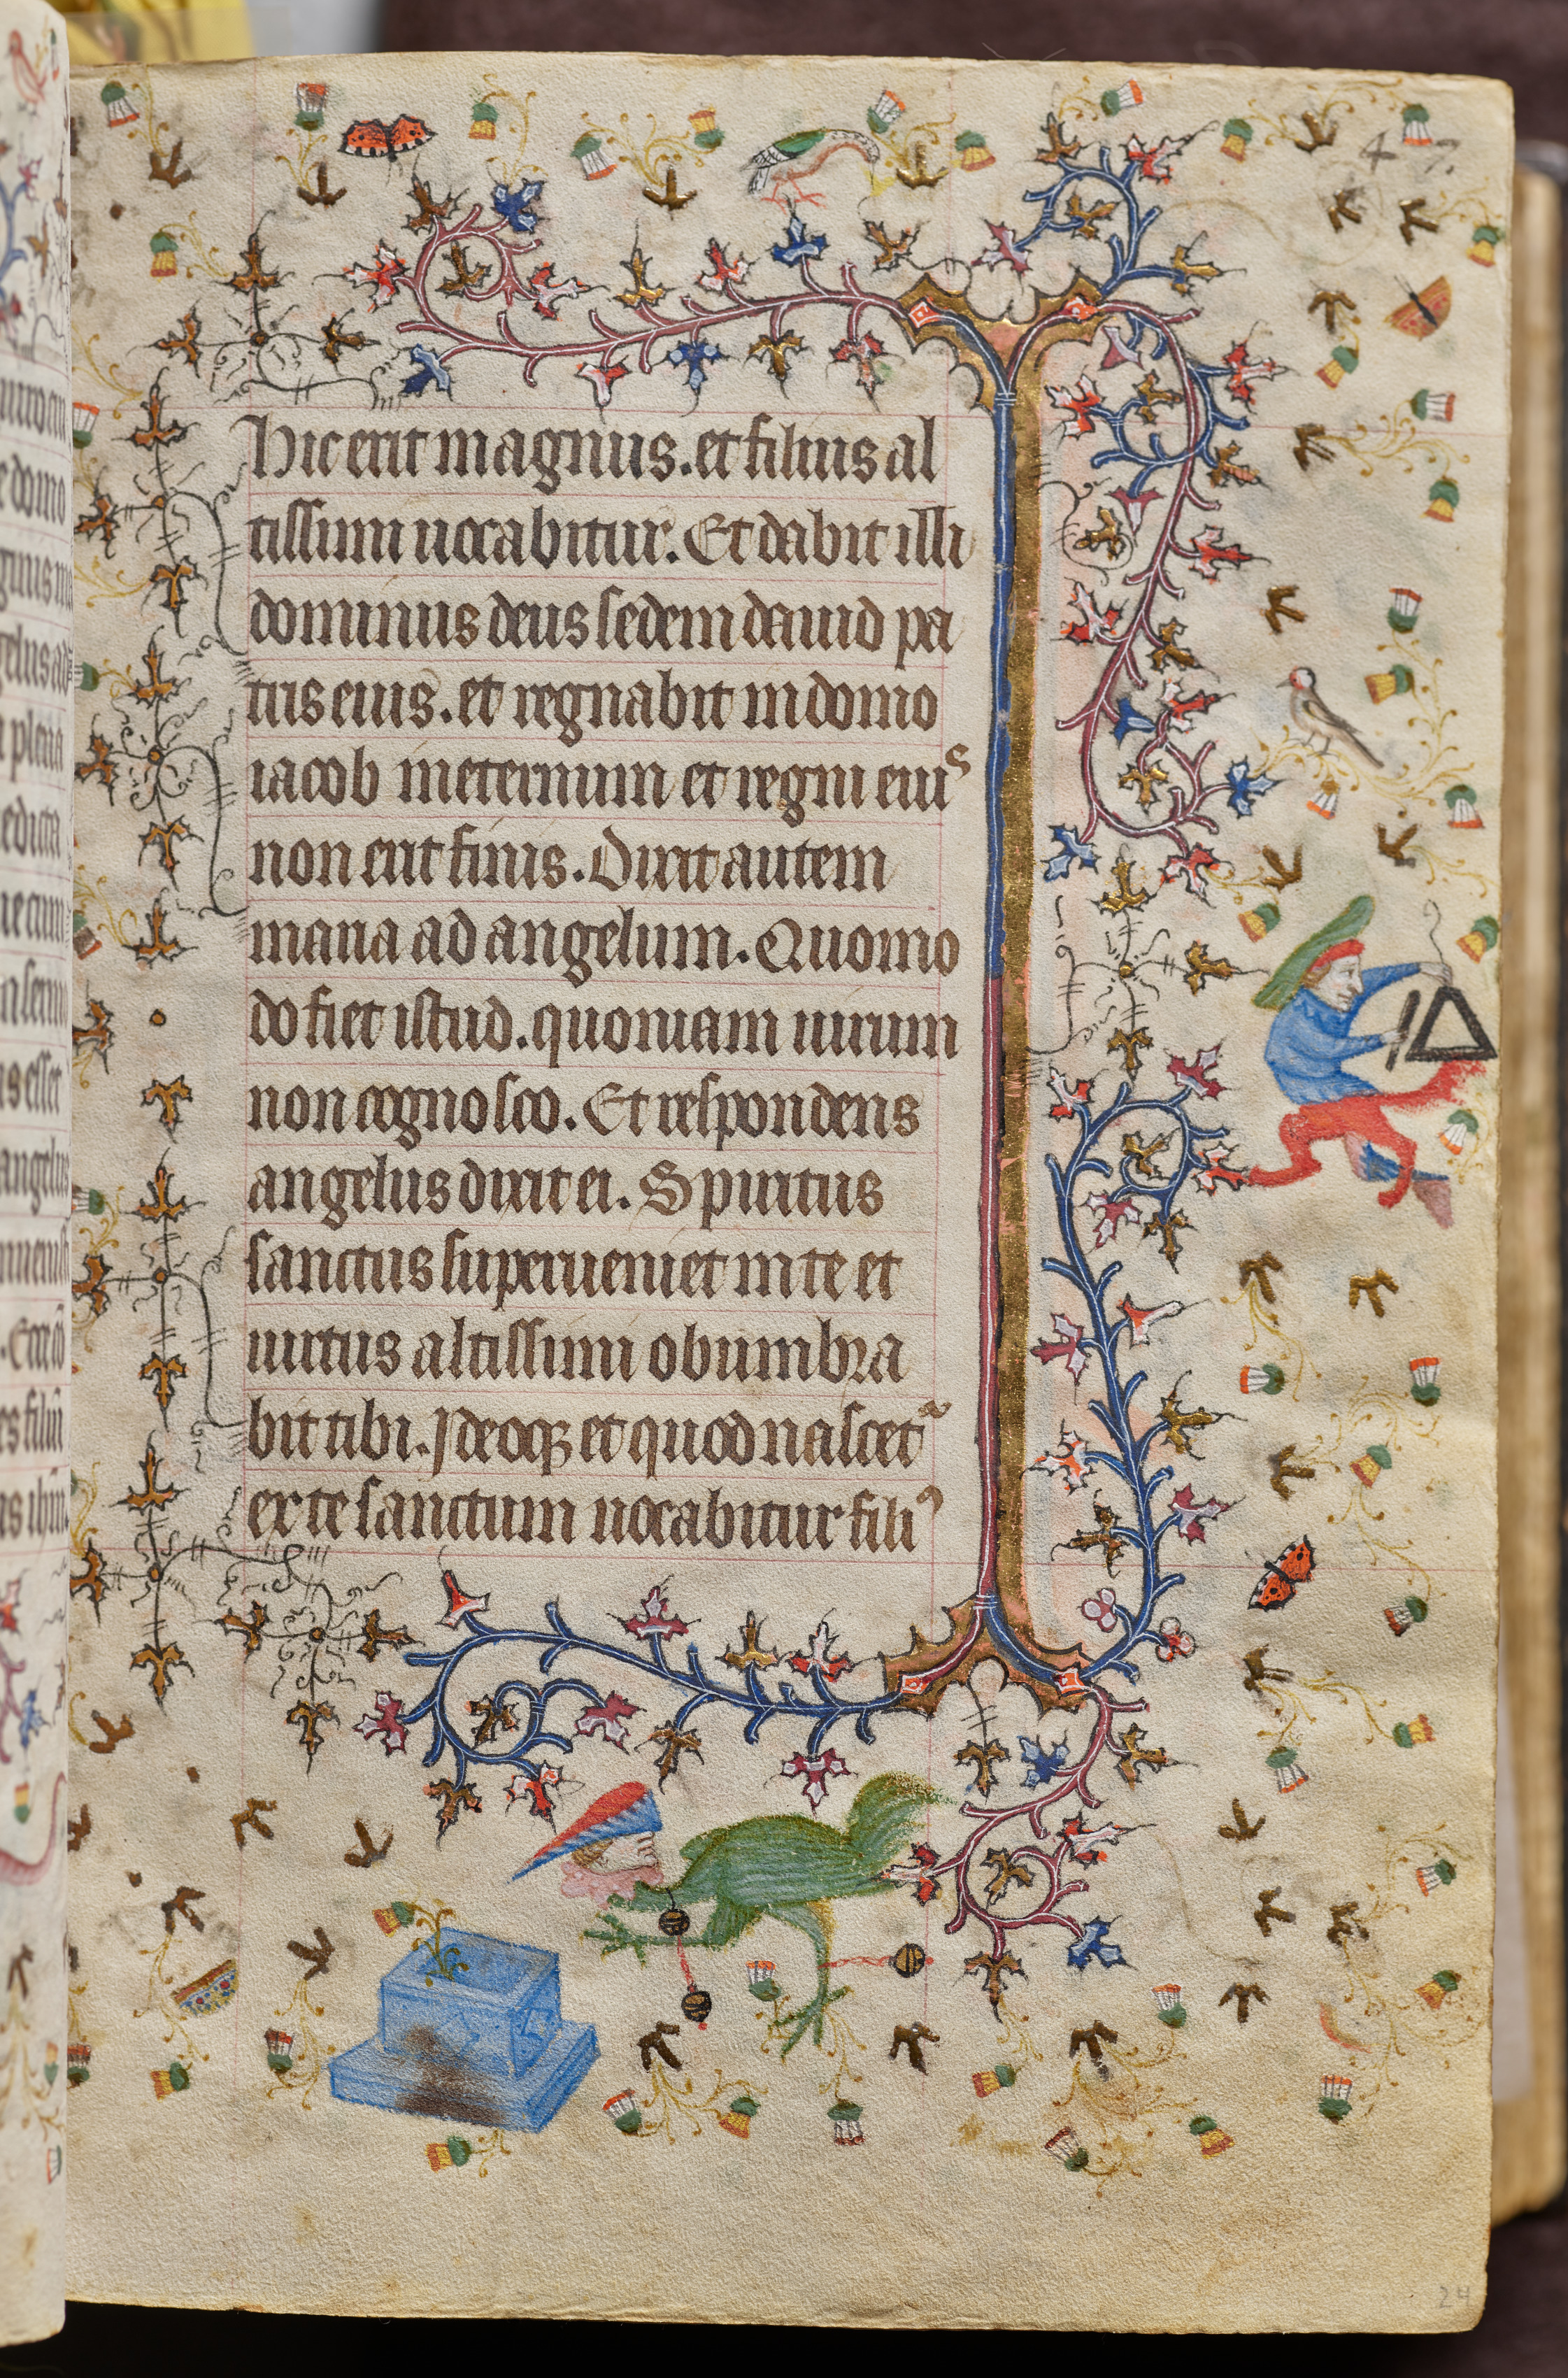 Hic erit magnus. et filius al
tissimi uocabitur. Et dabit illi
dominus deus sedem dauid pa
tris eius. et regnabit in domo
iacob in eternum et regni eius
non erit finis. Dixit autem
maria ad angelum. Quomo
do fiet istud. quoniam uirum
non cognosco. Et respondens
angelus dixit ei. Spiritus
sanctus superueniet in te et
uirtus altissimi obumbra
bit tibi. Ideoqꝫ et quod nascet᷑
ex te sanctum uocabitur filiꝰ
24